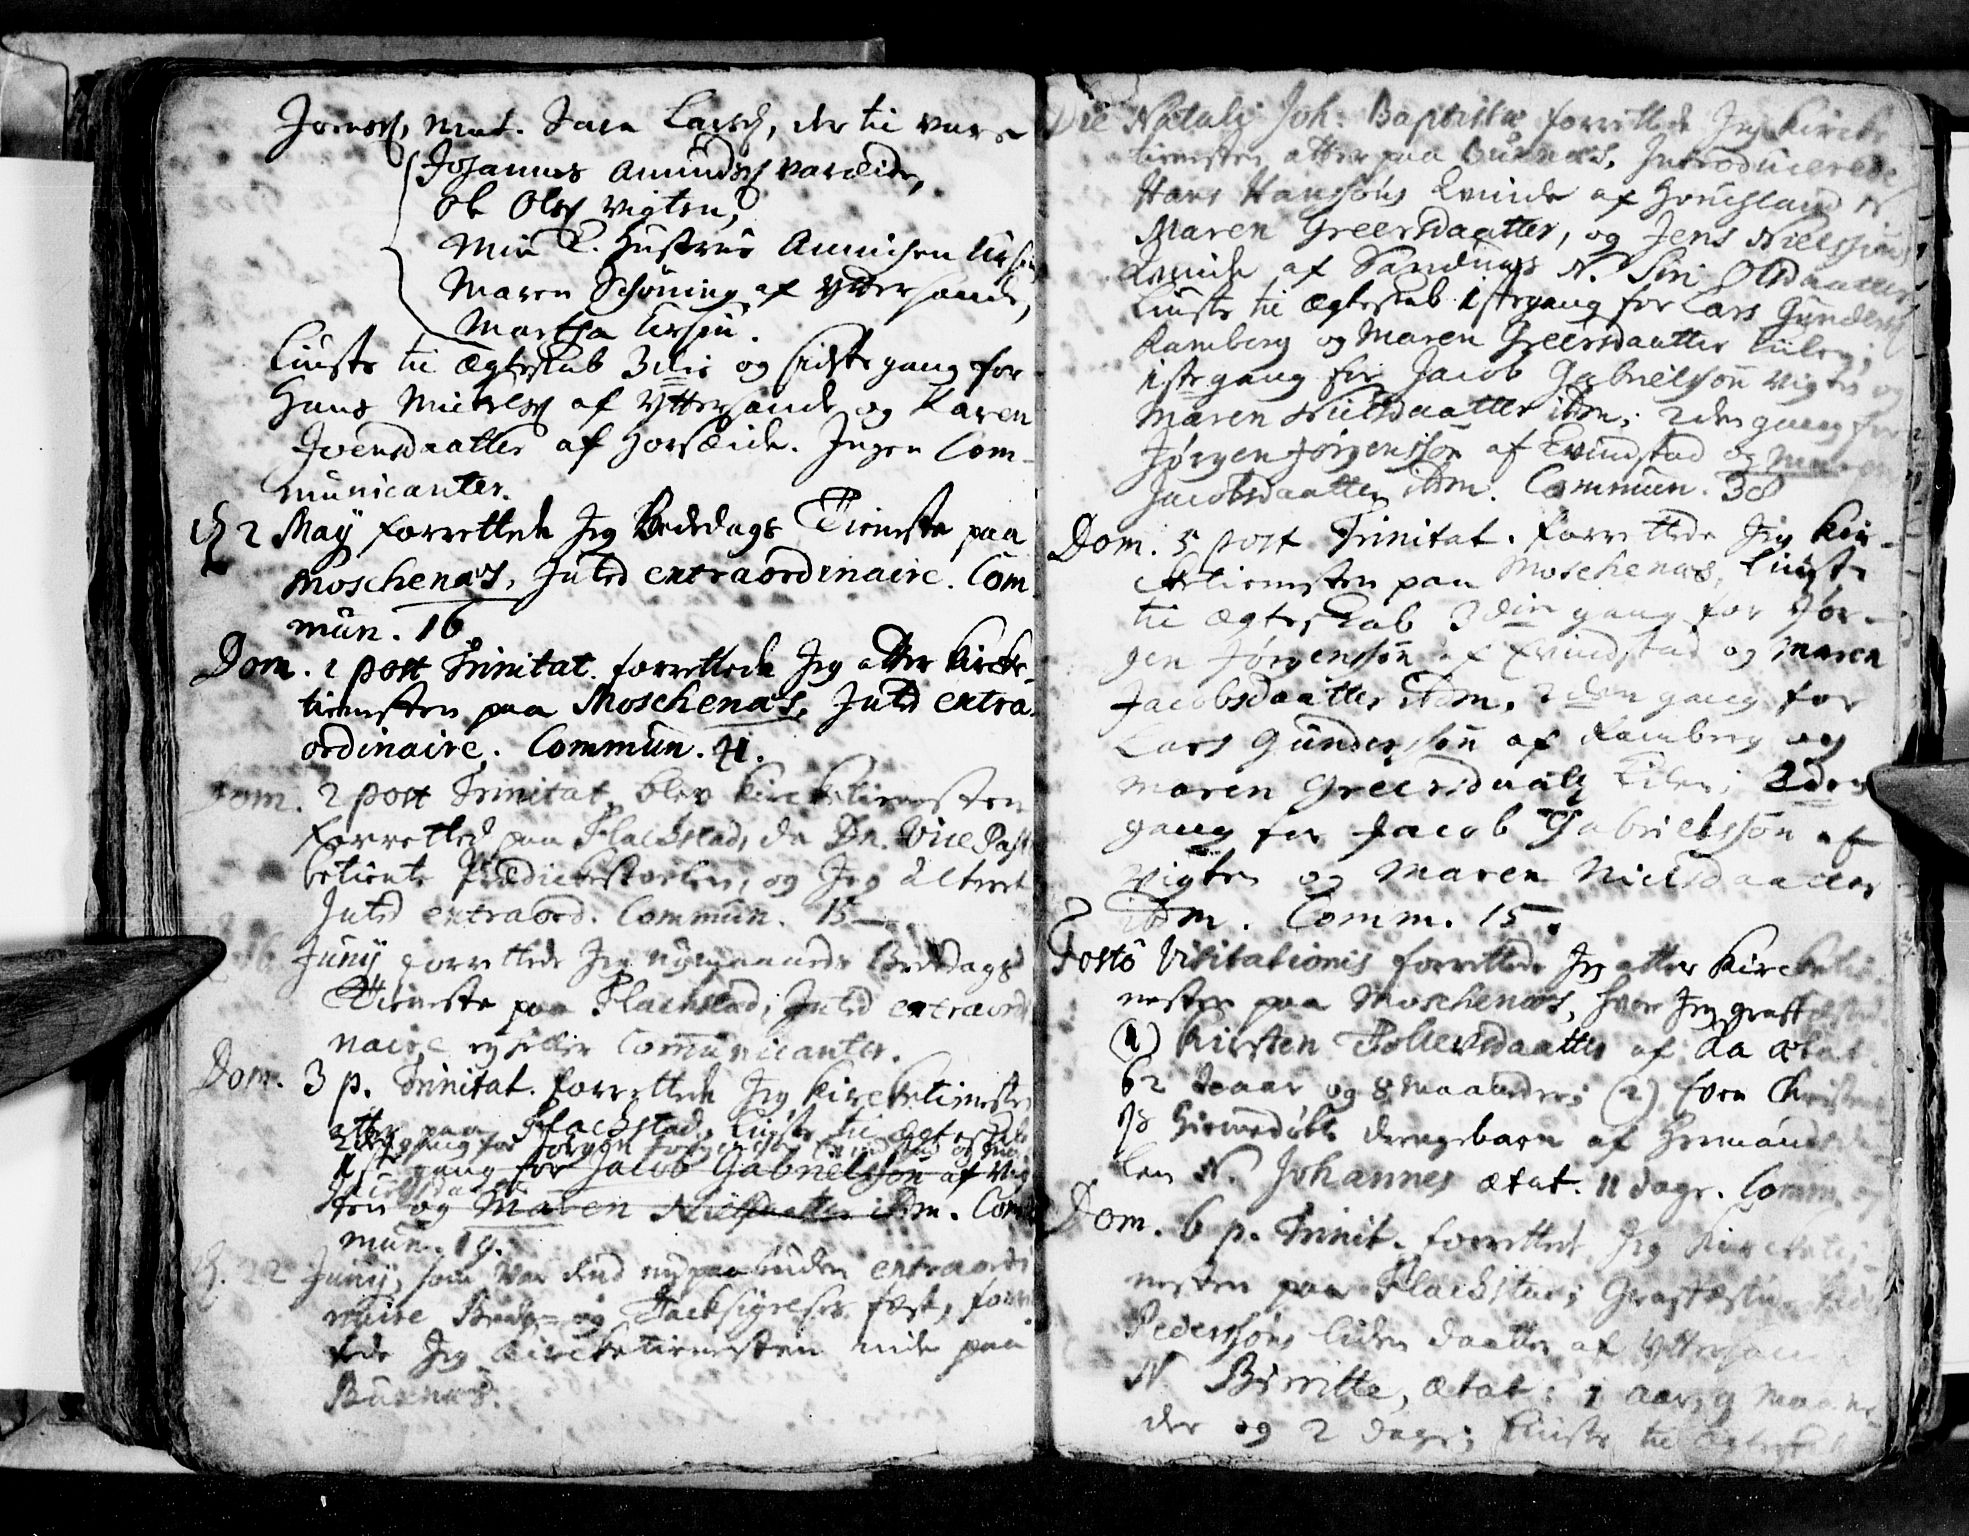 Joensøn, nat. Sara Larsd, der til vare
Johannes Amundsøn Vareide,
Ole Olsøn Vigten,
Min K. Hustrue Annichen Ursin
Maren Schøning af Yttersande,
Martha Ursin.
Liuste til Ægteskab 3die og sidste gang for
Hans Michelsøn af Yttersand og Karen
Joensdaatter af Horseide. Ingen Com-
municanter.
2 Maÿ forrettede Jeg Bededags Tieneste paa
Moschenæs, Intet extraordinaire. Com
mun. 16.
Dom. 1 post Trinitat. forrettede Jeg atter Kircke-
tienesten paa Moschenæs, Intet extra-
ordinaire. Commun. 41.
Dom. 2 post Trinitat. blev Kircketienesten
forretted paa Flackstad, da Dn. Vice Past
betiente Prædickestoelen, og Jeg Alteret
Intet extraord. Commun. 15
16 Junÿ forrettede Jeg nÿmaaneds Bededags
Tieneste paa Flackstad, Intet extraordi
naire, eÿ heller Communicanter.
Dom. 3 p. Trinitat. forrettede Jeg Kircketieneste
atter paa Flackstad, Liuste til Ægteskab
2den gang for Jørgen Jørgensøn Evindstad og Ma
1ste gang for Jacob Gabrielssøn af Vig
ten og Maren Nielsdaatter ibm. Com
mun. 19.
22 Junÿ, som var dend nÿpaabuden extraordi
naire Bede- og Tacksigelses fæst, forret
tede Jeg Kircketienesten inde paa
Buxnæs.
Die Natalj Joh: Baptistæ forrettede Jeg Kircke
tienesten atter paa Buxnæs, Introducerede
Hans Hanssøns Qvinde af N.
Maren Greersdaatter, og Jens Nielssøns
Qvinde af Sandnæs N. Siri Olsdaatter
Liuste til Ægteskab 1ste gang for Lars Gundersøn
Ramberg og Maren Greersdaatter ;
1ste gang for Jacob Gabrielssøn Vigten og
Maren Nielsdaatter ibm; 2den gang for
Jørgen Jørgenssøn af Evindstad og Maren
Jacobsdaatter ibm. Commun. 38
Dom. 5 post Trinitat. forrettede Jeg Kir-
cketienesten paa Moschenæs, Liuste
til Ægteskab 3die gang for Jør-
gen Jørgenssøn af Evindstad og Maren
Jacobsdaatter ibm, 2den gang for
Lars Gunderssøn af Ramberg og
Maren Greersdaattr ; 2den
gang for Jacob Gabrielssøn af
Vigten og Maren Nielsdaatter
ibm. Comm. 15.
Festo Visitationis forrettede Jeg atter Kircketie
nesten paa Moschenæs, hvor Jeg graffæstede
(1) Kirsten Tollevsdaatter af Aa ætat.
62 aar og 8 Maaneder; (2) Joen Christens
søns hiemedøbte drengebarn af
N. Johannes ætat. 11 dage. Comm.
Dom. 6 p. Trinit. forrettede Jeg Kircketie-
nesten paa Flackstad; Grafæstede
Pederssøns liden daatter af Yttersand
N Birritte, ætat: 1 aar, 9 Maane
der og 2 dage; Liuste til Ægteskab